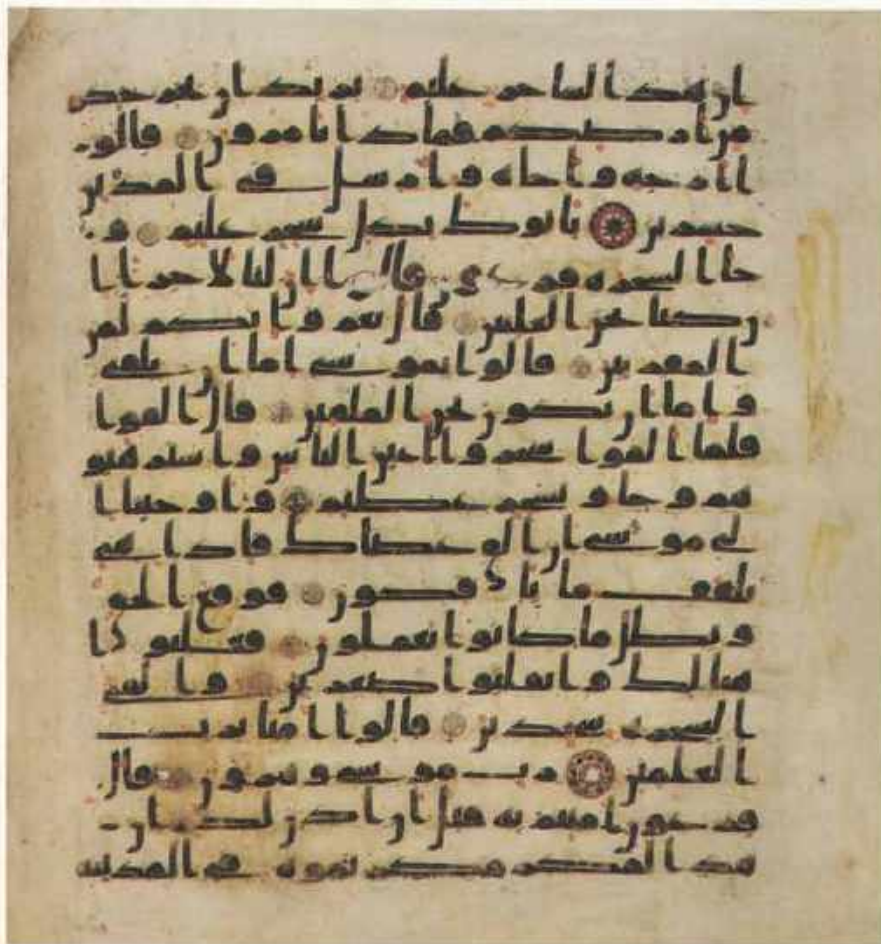 ان هذا لساحر عليم يريد ان يخرجكم
من ارضكم فماذا تامرون قالو
ا ارجه واخاه وارسل في المدين
حشرين ياتوك بكل سحر عليم و
جا السحرة فرعون قالوا ان لنا لاجرا ا
ن كنا نحن الغلبين قال نعم وانكم لمن
المقربين قالوا يموسى اما ان تلقى
واما ان نكون نحن الملقين قال القوا
فلما القوا سحروا اعين الناس واسترهبو
هم وجاو بسحر عظيم واوحينا ا
لى موسى ان الق عصاك فاذا هى
تلقف ما يافكون فوقع الحق
وبطل ما كانوا يعملون فغلبوا
هنالك وانقلبوا صغرين والقى
السحرة سجدين قالوا امنا برب
العلمين رب موسى وهرون قال
فرعون امنتم به قبل ان اذن لكم ان
هذا لمكر مكرتموه في المدينة